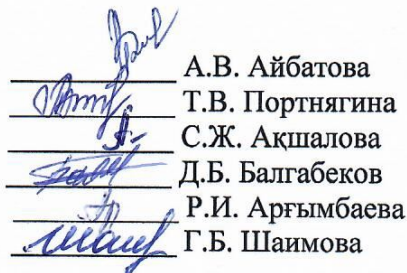 А.В. Айбатова
Т.В. Портнягина
С.Ж. Ақшалова
Д.Б. Балгабеков
Р.И. Арғымбаева
Г.Б. Шаимова